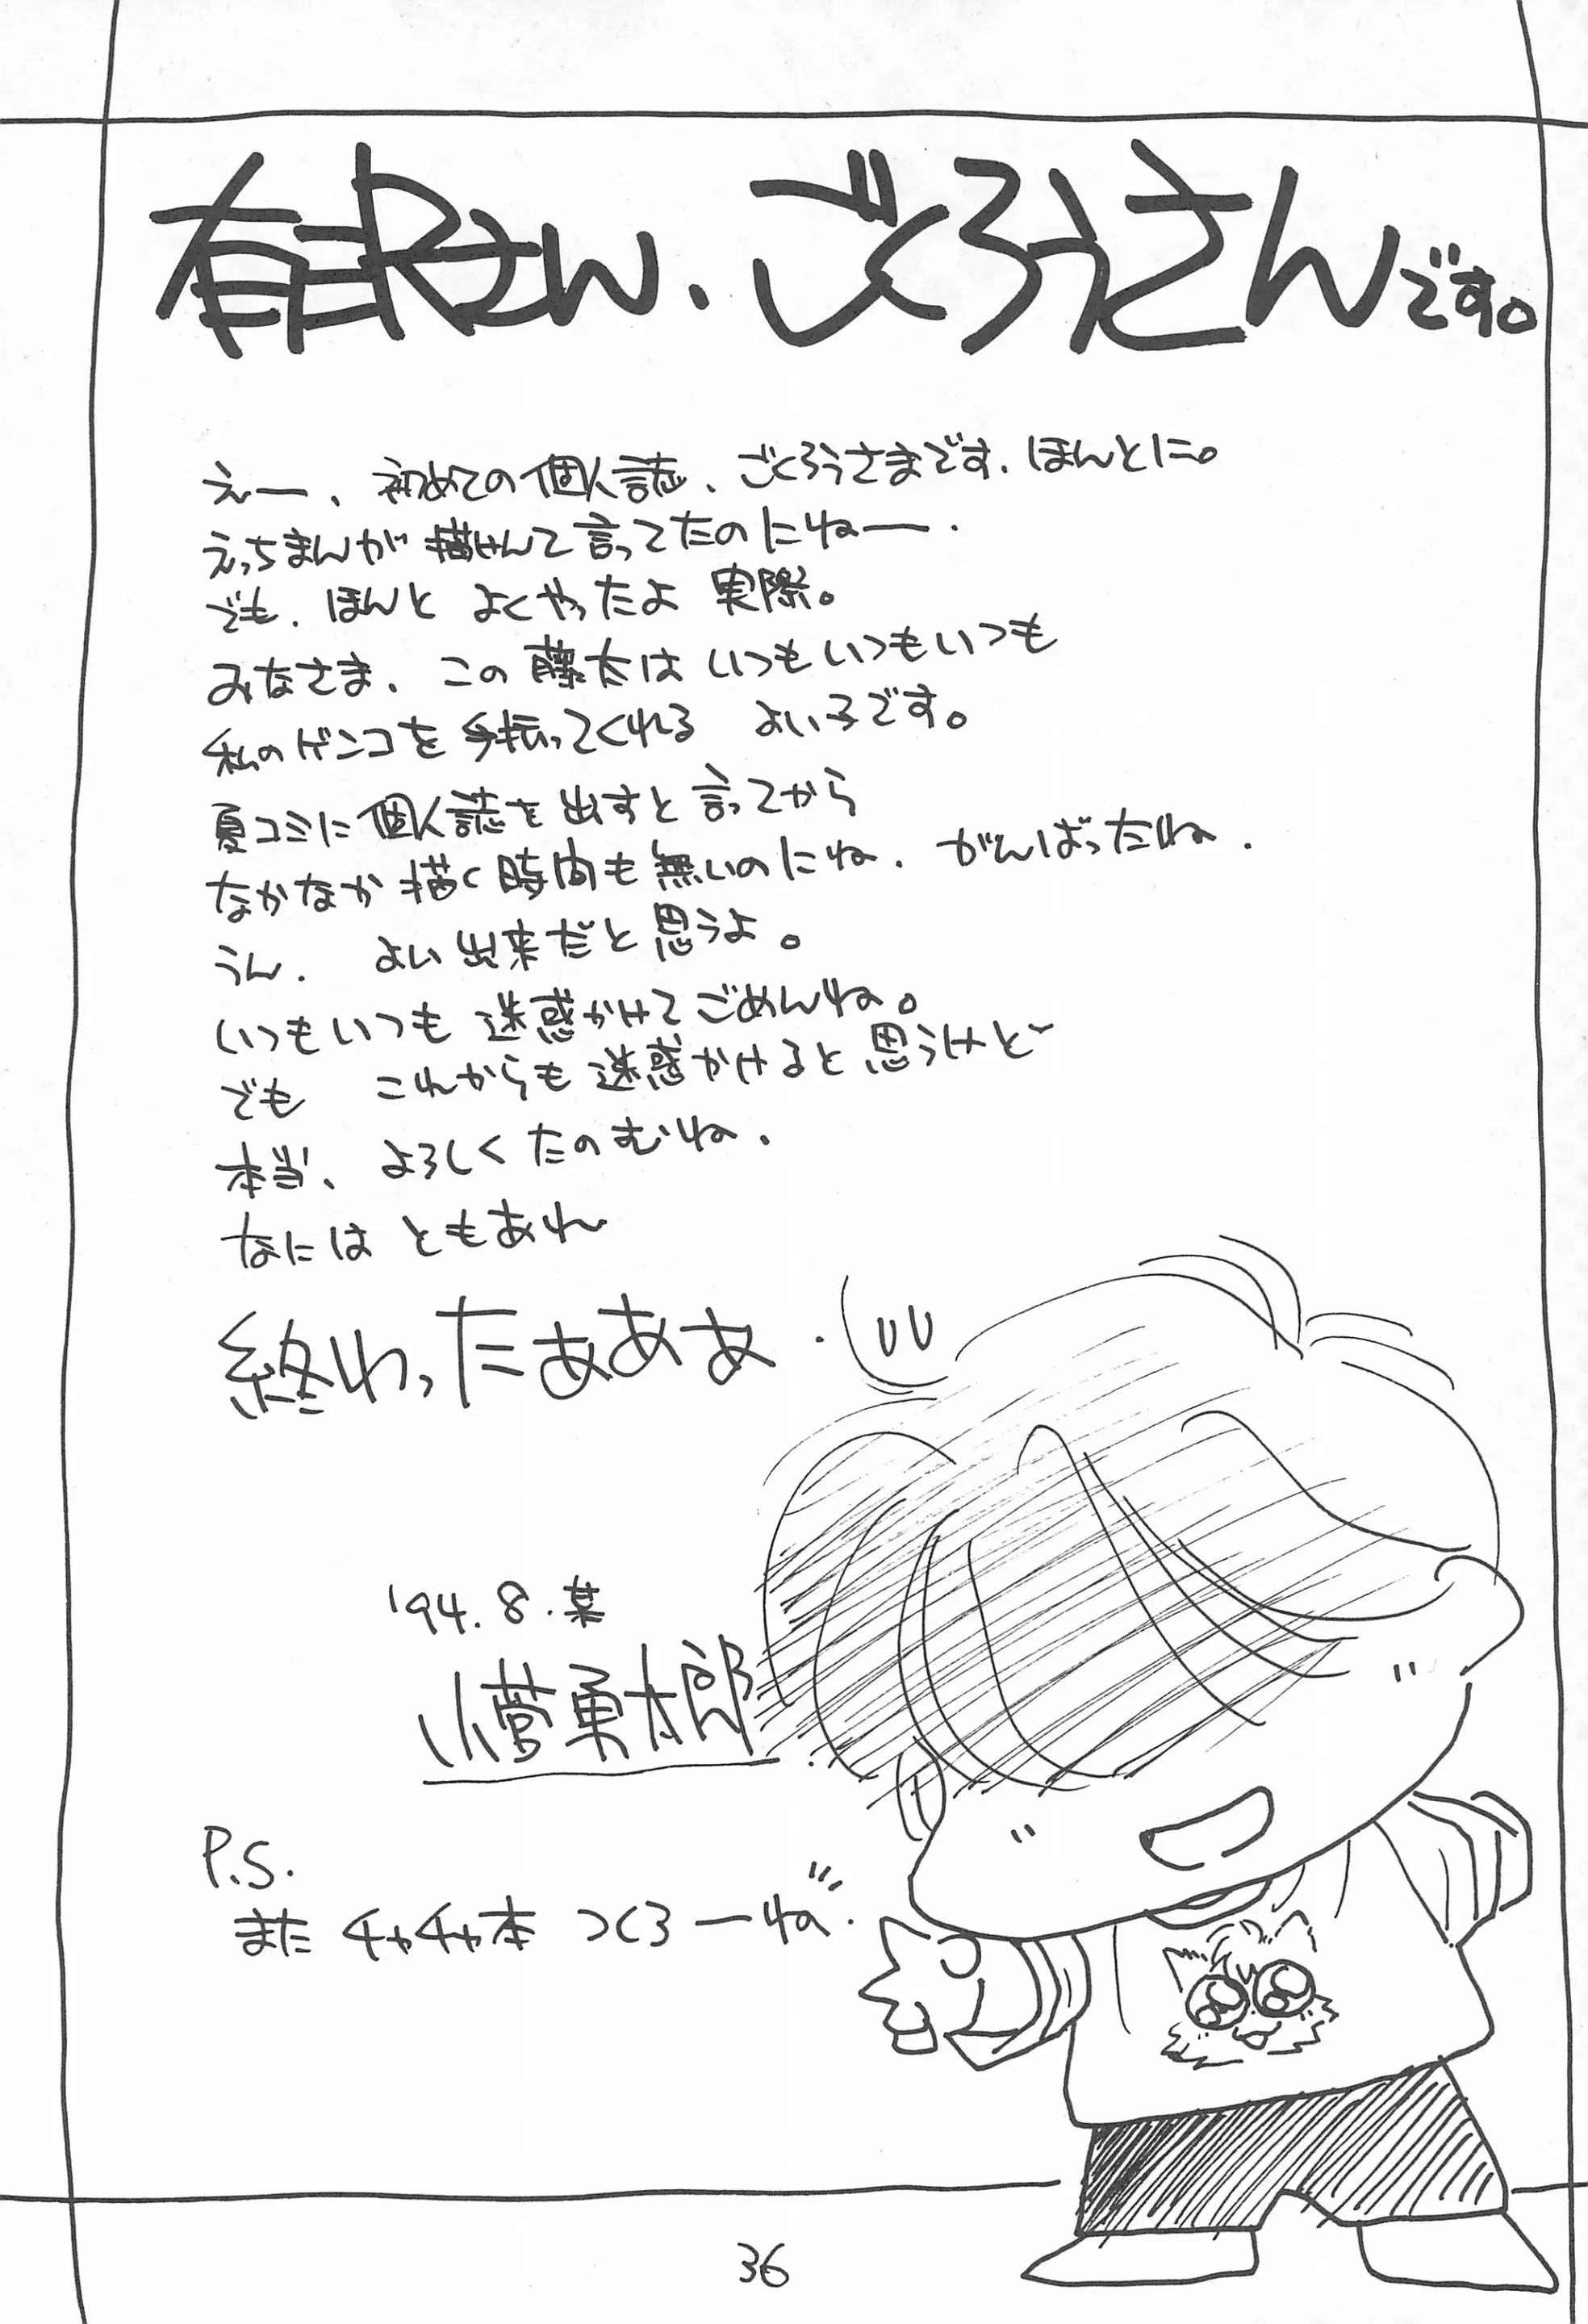 有訳さん、ごくろうさんです。
えー、初めての個人誌、ごくろうさまです、ほんとに。
えっちまんが描けんて言ってたのにねー.
でも、ほんと よくやったよ 実際。
みなさま、この藤太は いつもいつもいつも
私のゲンコを手伝ってくれる よい子です。
夏コミに個人誌を出すと言ってから
なかなか描く時間も無いのにね、がんばったね.
うん. よい出来だと思うよ。
いつもいつも迷惑かけてごめんね。
でも これからも迷惑かけると思うけど〜
本当、よろしくたのむね.
なには ともあれ
終わったぁああ.
'94.8.某
小菅勇太郎
P.S.
また チャチャ本 つくろーね.
36